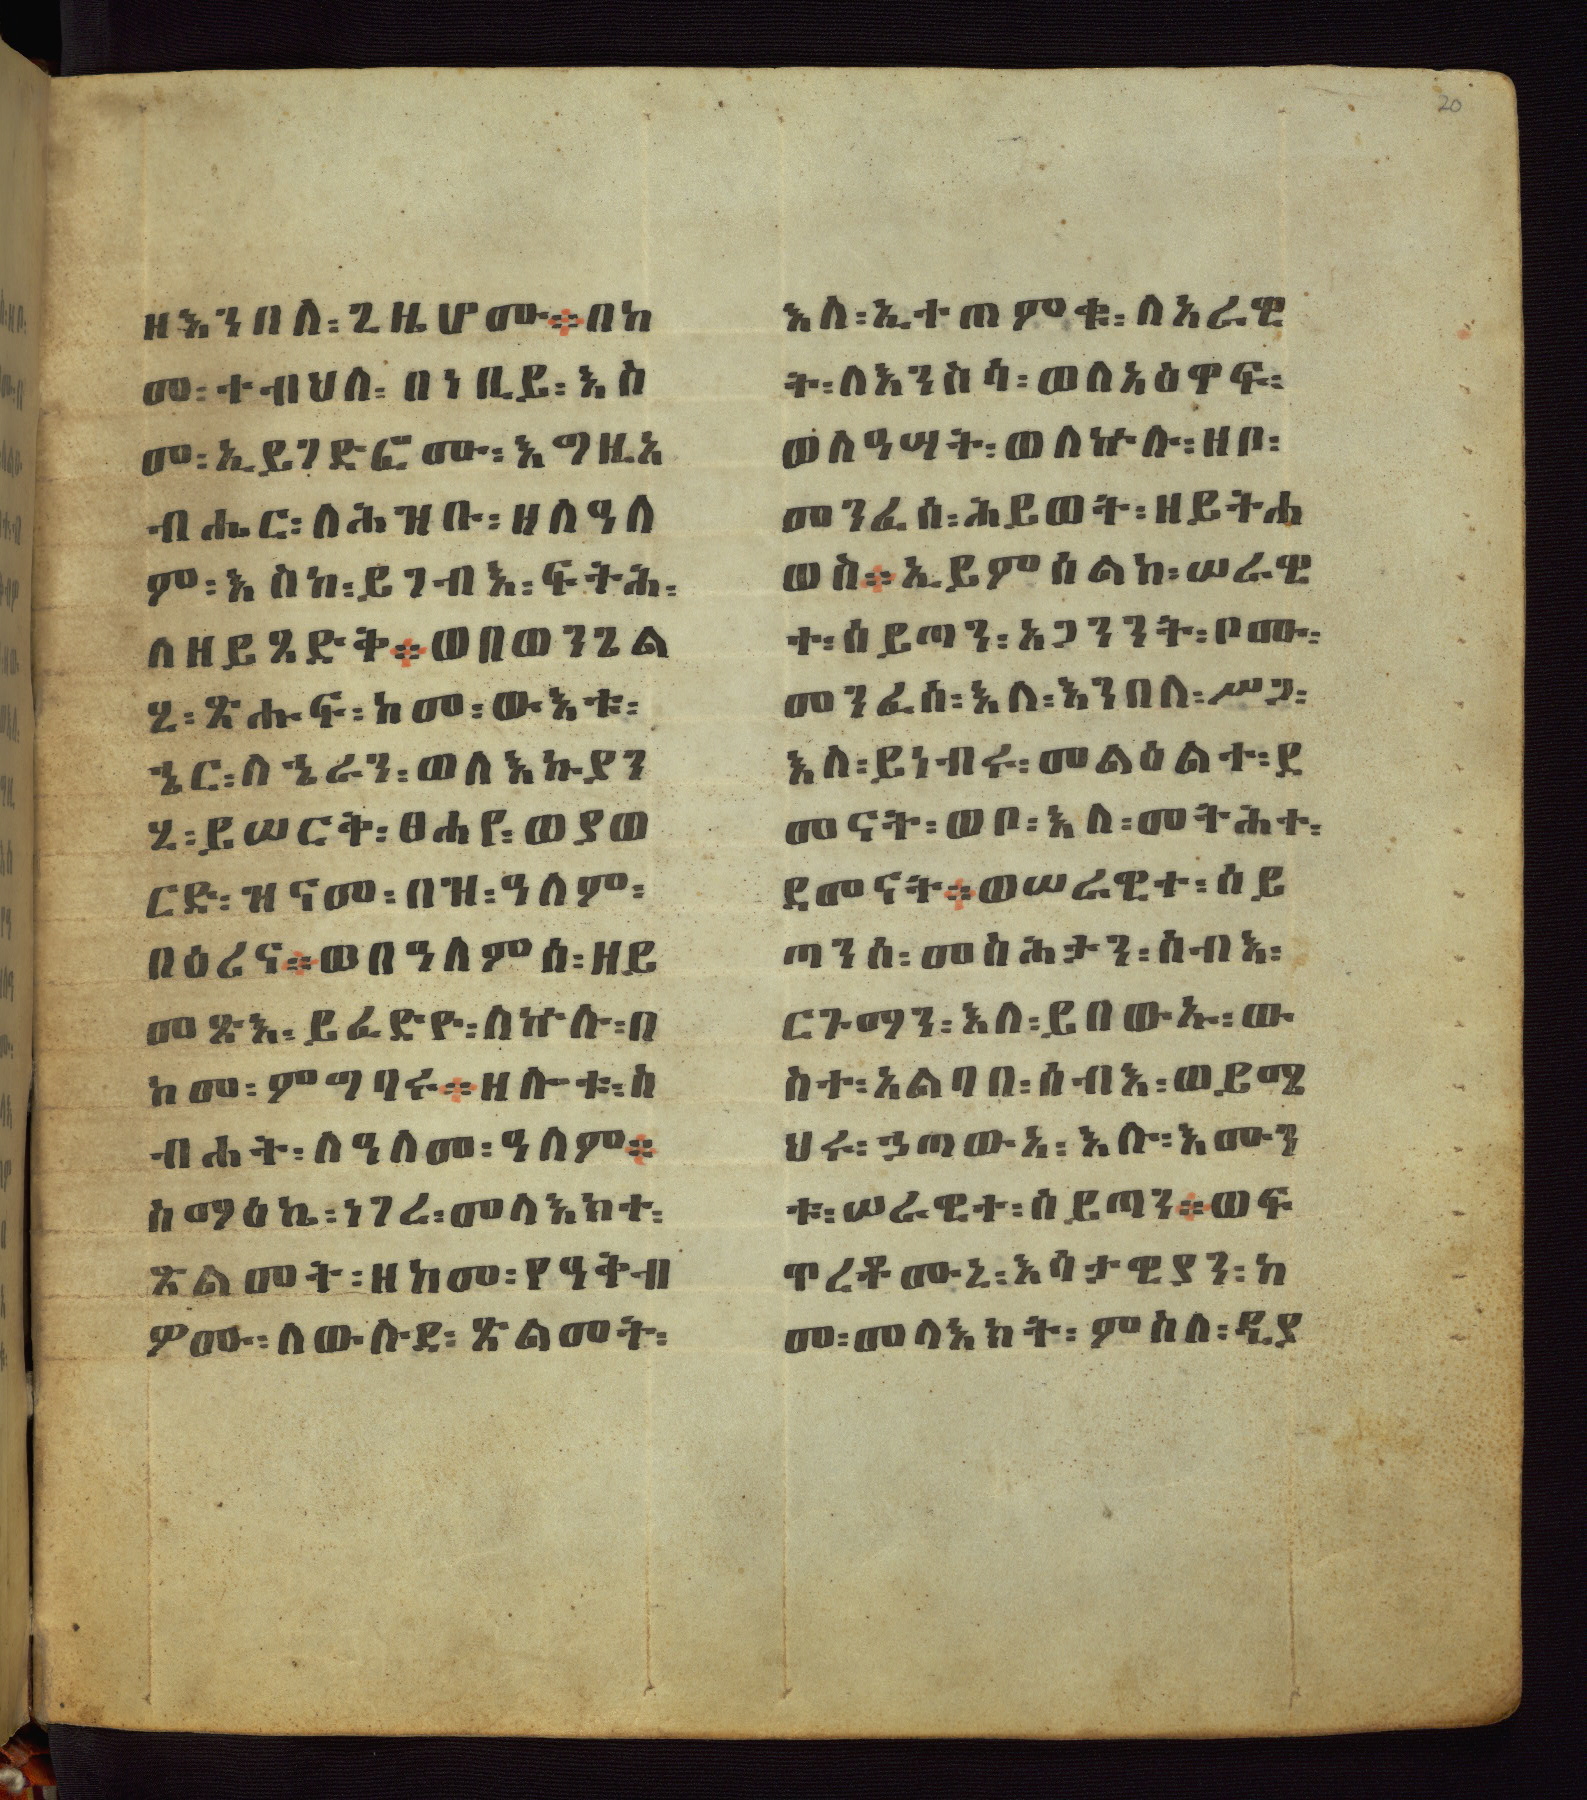 20
ዘእንበለ፡ጊዜሆሙ።በከ
መ፡ተብህለ፡በነቢይ፡እስ
መ፡ኢይገድፎሙ፡እግዚአ
ብሔር፡ለሕዝቡ፡ዘለዓለ
ም፡እስከ፡ይገብእ፡ፍትሕ፡
ለዘይጼድቅ።ወበወንጌል
ኒ፡ጽሑፍ፡ከመ፡ውእቱ፡
ኄር፡ለኄራን፡ወለእኩያን
ኒ፡ይሠርቅ፡ፀሐየ፡ወያወ
ርድ፡ዝናመ፡በዝ፡ዓለም፡
በዕሪና።ወበዓለምሰ፡ዘይ
መጽእ፡ይፈድዮ፡ለኵሉ፡በ
ከመ፡ምግባሩ።ዘሎቱ፡ስ
ብሐት፡ለዓለመ፡ዓለም።
ስማዕኬ፡ነገረ፡መላእክተ፡
ጽልመት፡ዘከመ፡የዓቅብ
ዎሙ፡ለውሉደ፡ጽልመት፡
እለ፡ኢተጠምቁ፡ለአራዊ
ት፡ለእንስሳ፡ወለአዕዋፍ፡
ወለዓሣት፡ወለኵሉ፡ዘቦ፡
መንፈሰ፡ሕይወት፡ዘይትሐ
ወስ።ኢይምሰልከ፡ሠራዊ
ተ፡ሰይጣን፡አጋንንት፡ቦሙ፡
መንፈሰ፡እለ፡እንበለ፡ሥጋ፡
እለ፡ይነብሩ፡መልዕልተ፡ደ
መናት፡ወቦ፡እለ፡መትሕተ፡
ደመናት።ወሠራዊተ፡ሰይ
ጣንሰ፡መስሕታን፡ሰብእ፡
ርጉማን፡እለ፡ይበውኡ፡ው
ስተ፡አልባበ፡ሰብእ፡ወይሜ
ህሩ፡ኃጣውአ፡እሉ፡እሙን
ቱ፡ሠራዊተ፡ሰይጣን።ወፍ
ጥረቶሙኒ፡እሳታዊያን፡ከ
መ፡መላእክት፡ምስለ፡ዲያ